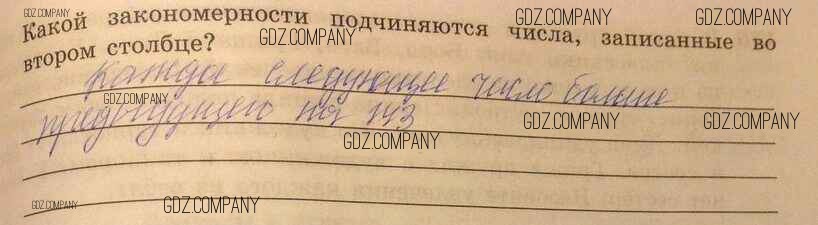 GDZ.COMPANY GDZ.COMPANY GDZ.COMPANY
Какой закономерности подчиняются числа, записанные во
втором столбце? GDZ.COMPANY
каждое следующее число больше
GDZ.COMPANY
предыдущего на 143
GDZ.COMPANY GDZ.COMPANY
GDZ.COMPANY
GDZ.COMPANY GDZ.COMPANY